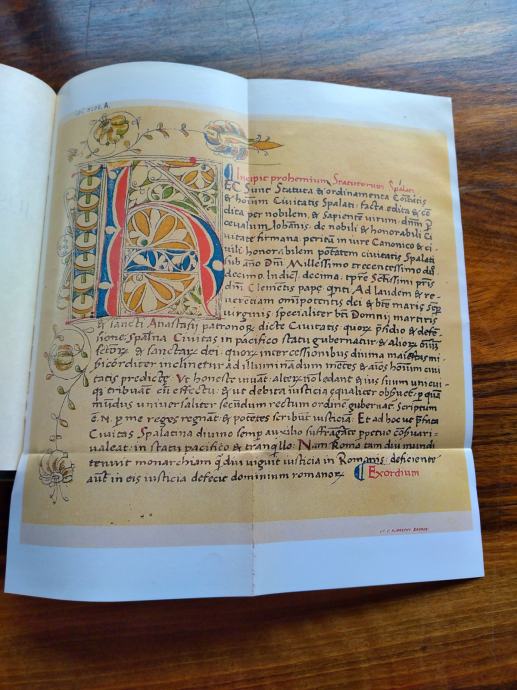 Incipit prohemium Statutorum Spalati
EC Sunt Statuta & ordinamenta Coītatis
& honorū Civitatis Spalati facta edita & cō
dita per nobilem, & sapientē virum. dn̄m P
cevalum Johānis. de nobili & honorabili Ci
vitate firmana. peritū in iure Canonico & ci
vili honorabilem potātem civitatis Spalati
sub año Dn̄i Millessimo trecentessimo duo
decimo. Indict. decima. tpr̄e Sc̄tissimi pris
dn̄i Clemētis pape qnti. Ad laudem & re
verētiam omīpotētis dei & bt̄e marie semp
virginis specialiter bt̄i Domnij martiris
& sancti Anastasij patronor dicte Civitatis quor p̄sidio & defē
sione. Spalīna Civitas in pacifico statu gubernatur & alior oīuꝫ
sctor & sanctar dei quor intercessionibus divina maiestas mi
sicorditer inclinetur ad illuminādum mētes & aīos hoīum civi
tatis predicte. Vt honeste vivāt. alter nō ledant & ius suum unicui
qꝫ tribuāt. cū effectu. & ut debita iusticia equaliter obsvet. p quā
mūdus universaliter secūdum rectum ordinē gubernat. Scriptum
E. N. p me reges regnāt & potētes scribūt iusticiā. Et ad hoc ut p̄fata
Civitas Spalatina divino semp auxilio suffragāte ppetuo cōservari
valeat in statu pacifico & tranqllo. Nam Roma tam diu mundi
tenuit monarchiam q̄ diu viguit iusticia in Romanis: deficiente
aut̄ in eis iusticia defecit dominium romanor
Exordium